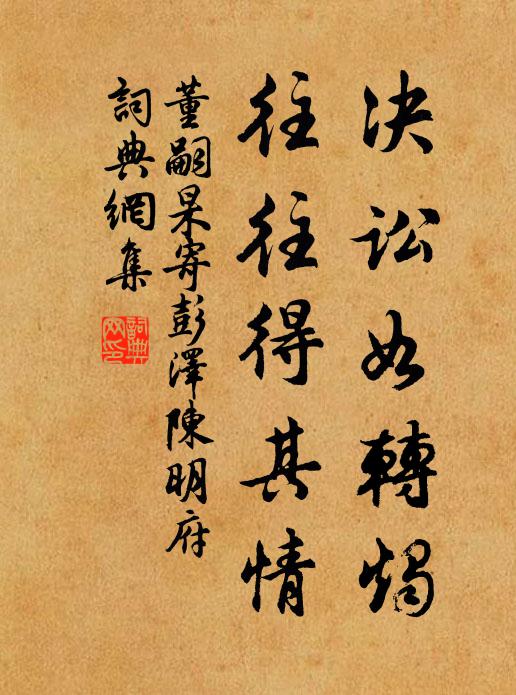 決訟如轉燭
往往得其情
董嗣杲寄彭澤陳明府
詞典網集
詞典網印